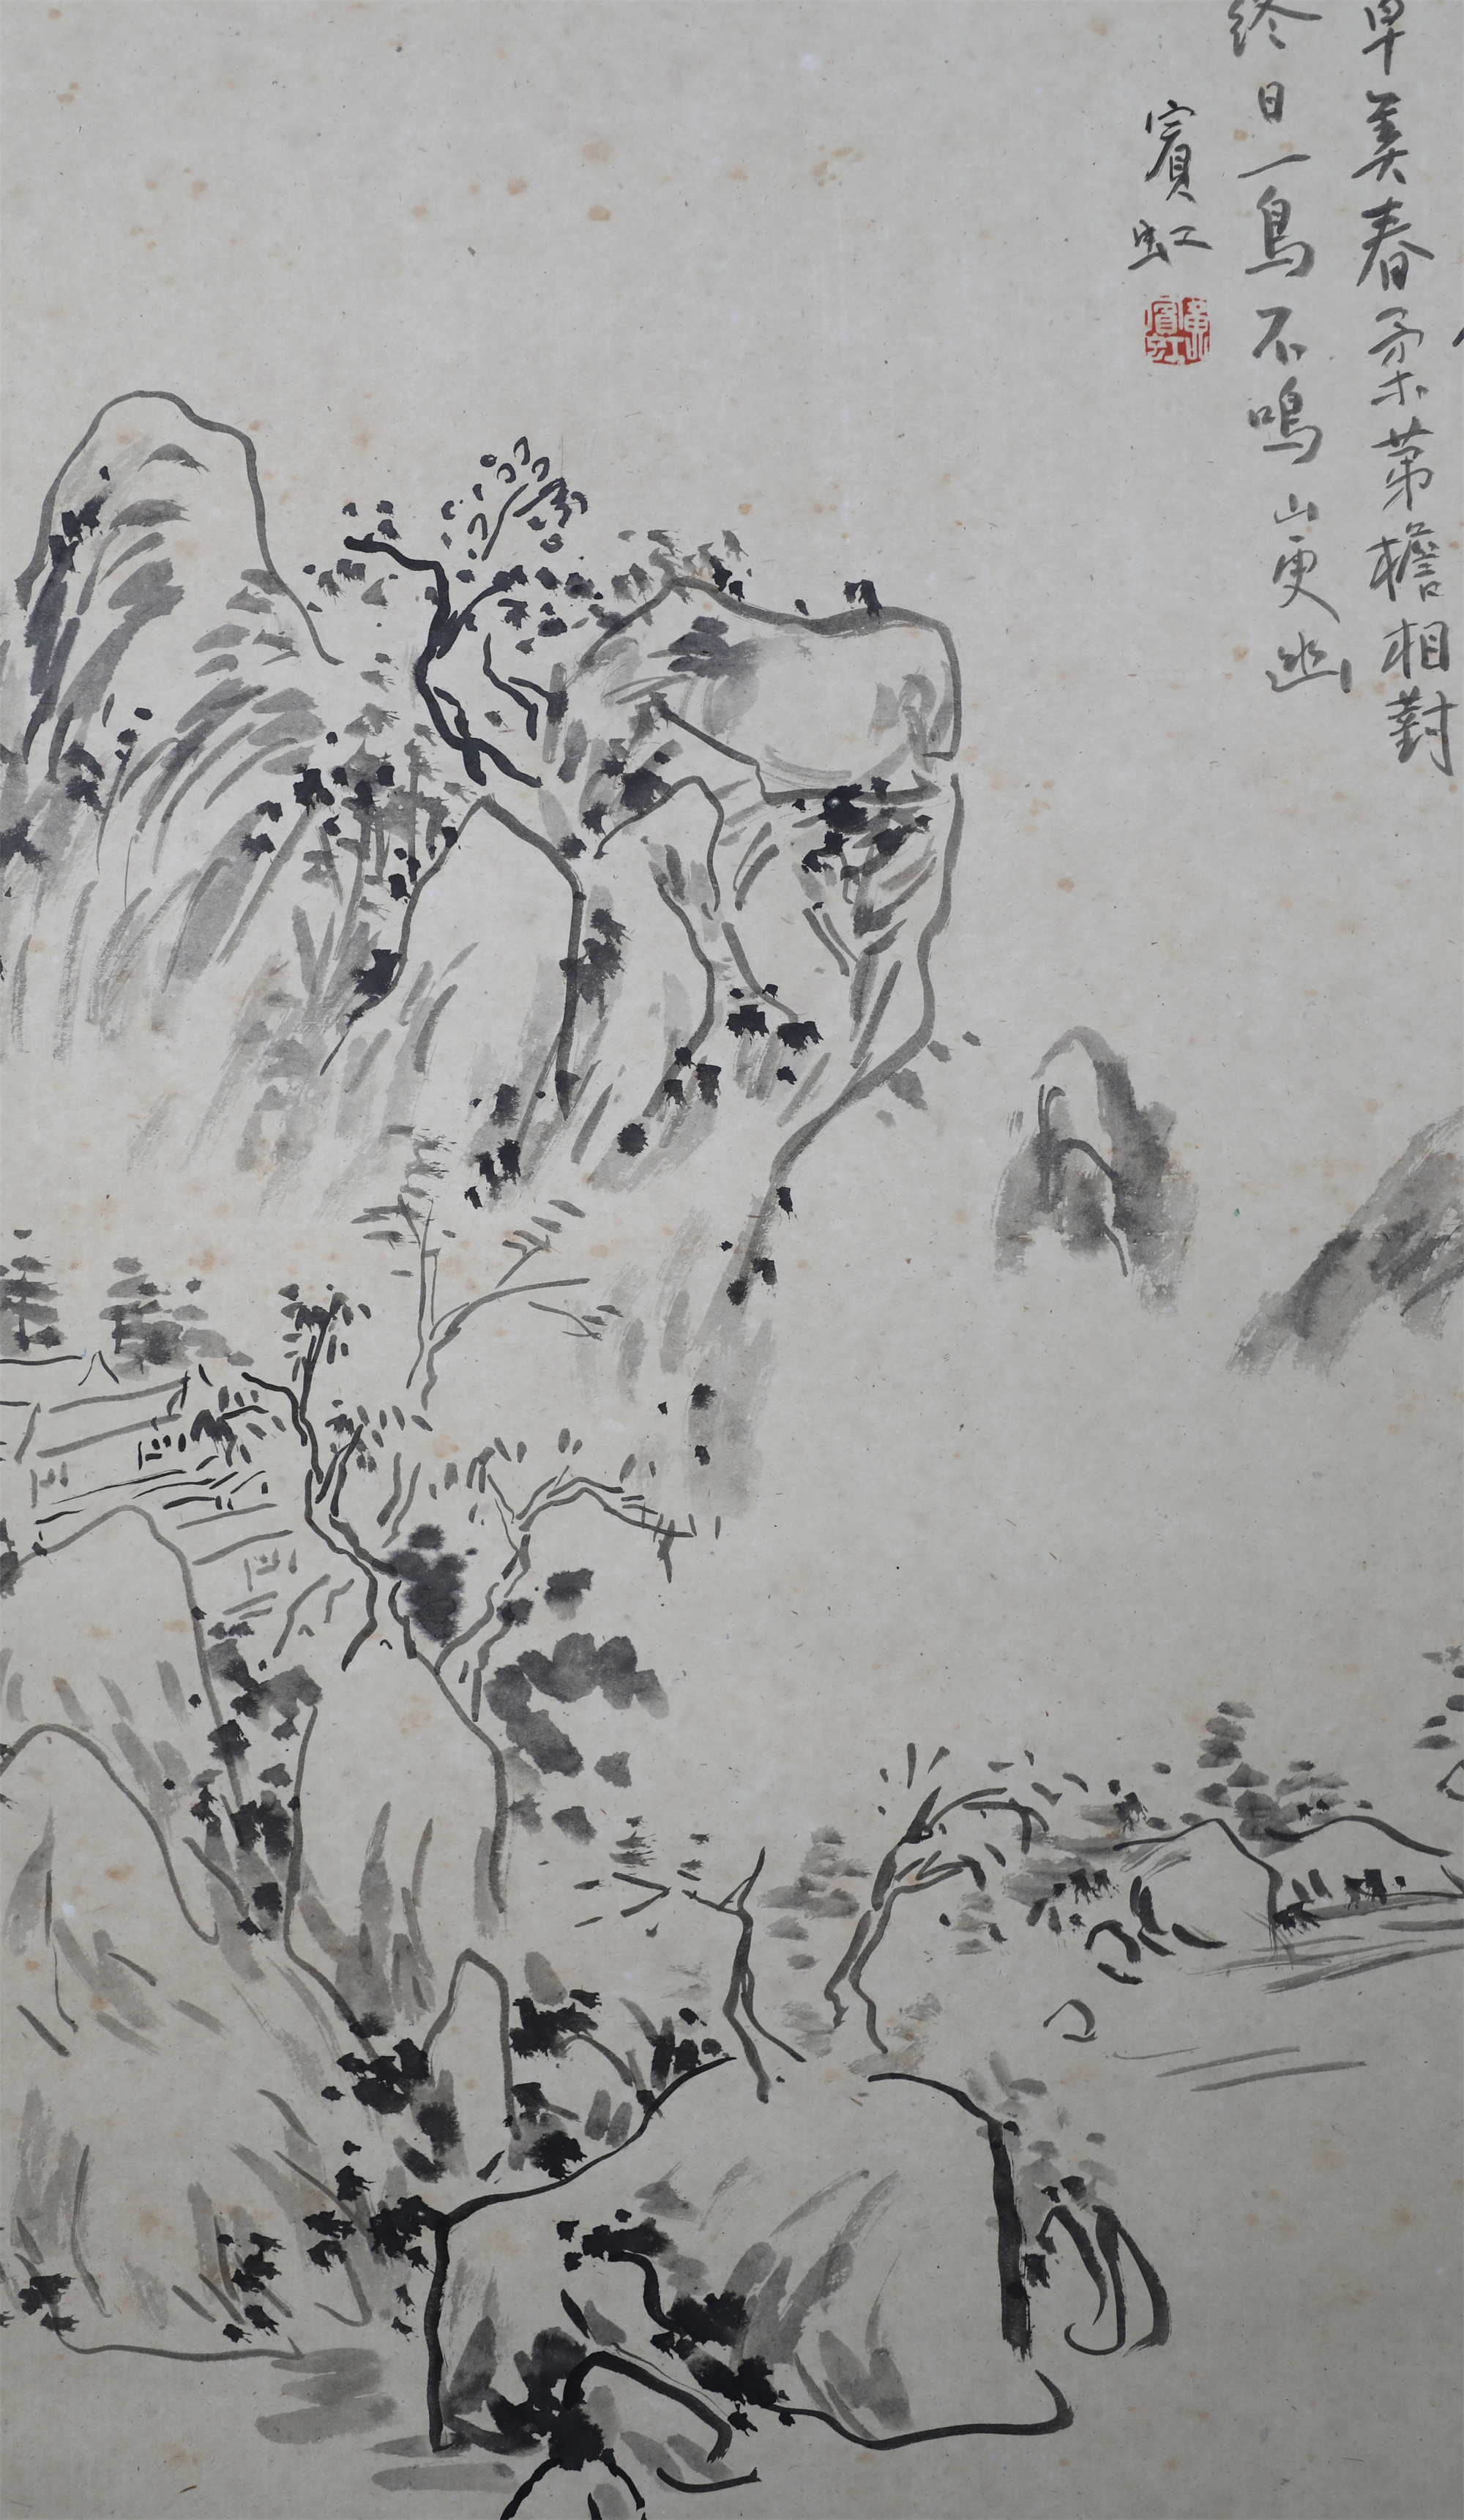 草弄春柔茅檐相對
終日一鳥不鳴山更幽
賓虹
黃賓虹